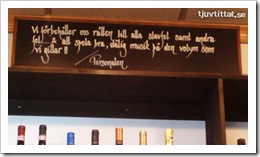 tjuvtittat.se
Vi förbehåller oss rätten till alla stavfel samt andra
fel & att spela bra, dålig musik på den volym som
vi gillar !!
Personalen